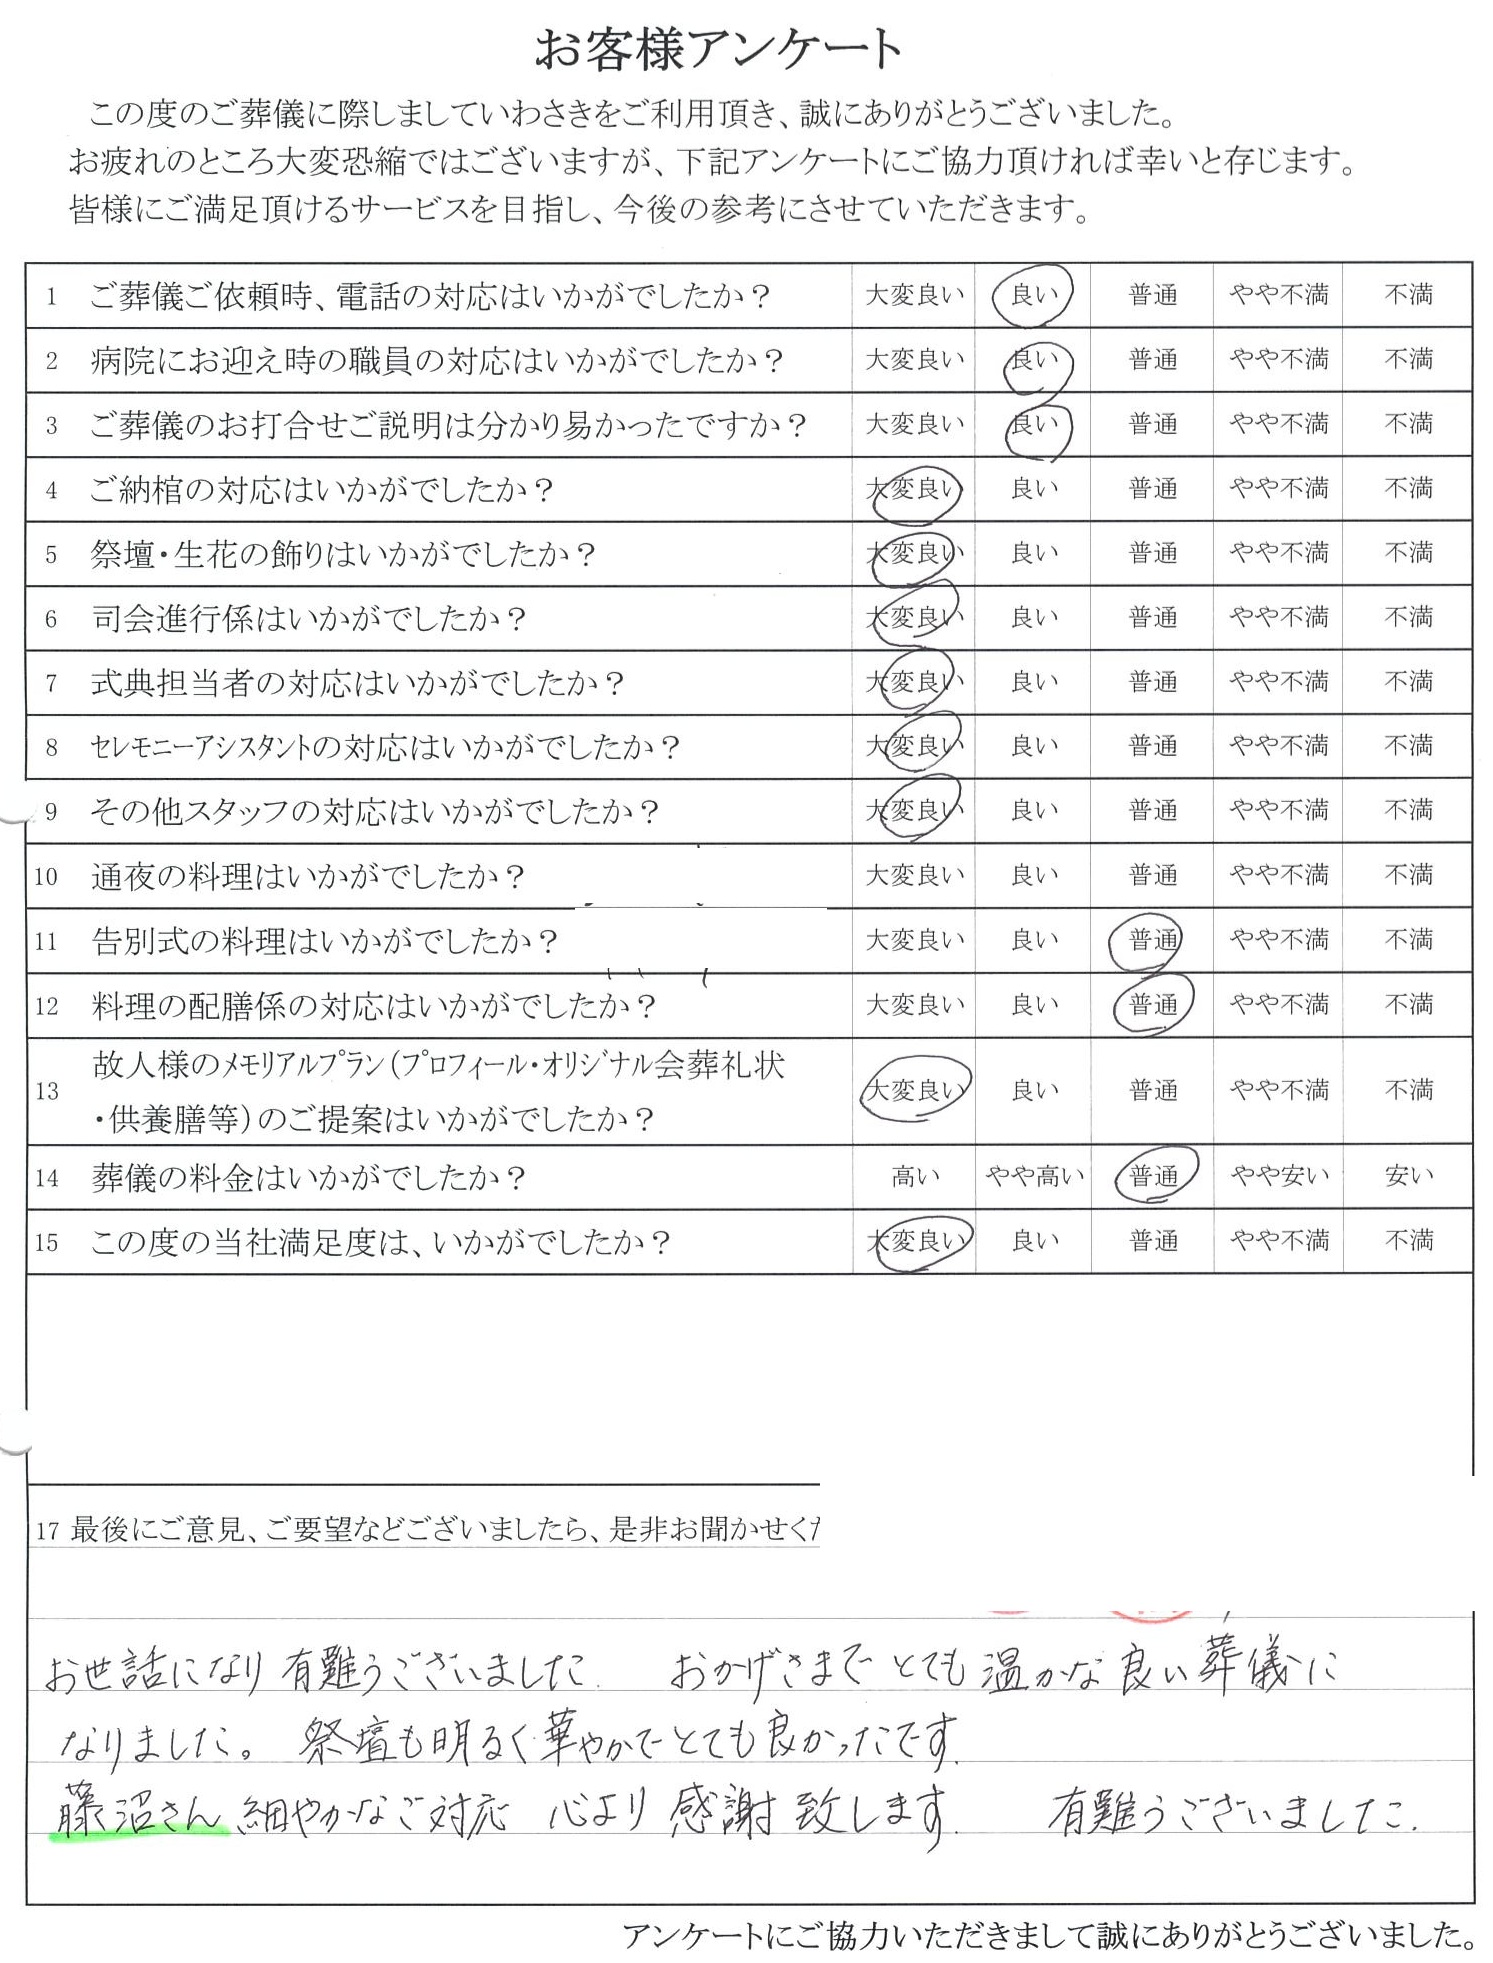 お客様アンケート
この度のご葬儀に際しましていわさきをご利用頂き、誠にありがとうございました。
お疲れのところ大変恐縮ではございますが、下記アンケートにご協力頂ければ幸いと存じます。
皆様にご満足頂けるサービスを目指し、今後の参考にさせていただきます。
1 ご葬儀ご依頼時、電話の対応はいかがでしたか? 大変良い 良い 普通 やや不満 不満
2 病院にお迎え時の職員の対応はいかがでしたか? 大変良い 良い 普通 やや不満 不満
3 ご葬儀のお打合せご説明は分かり易かったですか? 大変良い 良い 普通 やや不満 不満
4 ご納棺の対応はいかがでしたか? 大変良い 良い 普通 やや不満 不満
5 祭壇・生花の飾りはいかがでしたか? 大変良い 良い 普通 やや不満 不満
6 司会進行係はいかがでしたか? 大変良い 良い 普通 やや不満 不満
7 式典担当者の対応はいかがでしたか? 大変良い 良い 普通 やや不満 不満
8 セレモニーアシスタントの対応はいかがでしたか? 大変良い 良い 普通 やや不満 不満
9 その他スタッフの対応はいかがでしたか? 大変良い 良い 普通 やや不満 不満
10 通夜の料理はいかがでしたか? 大変良い 良い 普通 やや不満 不満
11 告別式の料理はいかがでしたか? 大変良い 良い 普通 やや不満 不満
12 料理の配膳係の対応はいかがでしたか? 大変良い 良い 普通 やや不満 不満
13 故人様のメモリアルプラン(プロフィール・オリジナル会葬礼状
・供養膳等)のご提案はいかがでしたか? 大変良い 良い 普通 やや不満 不満
14 葬儀の料金はいかがでしたか? 高い やや高い 普通 やや安い 安い
15 この度の当社満足度は、いかがでしたか? 大変良い 良い 普通 やや不満 不満
17 最後にご意見、ご要望などございましたら、是非お聞かせく
お世話になり 有難うございました. おかげさまで とても 温かな 良い 葬儀に
なりました。 祭壇も明るく華やかで とても良かったです.
藤沼さん 細やかなご対応 心より 感謝 致します. 有難うございました.
アンケートにご協力いただきまして誠にありがとうございました。